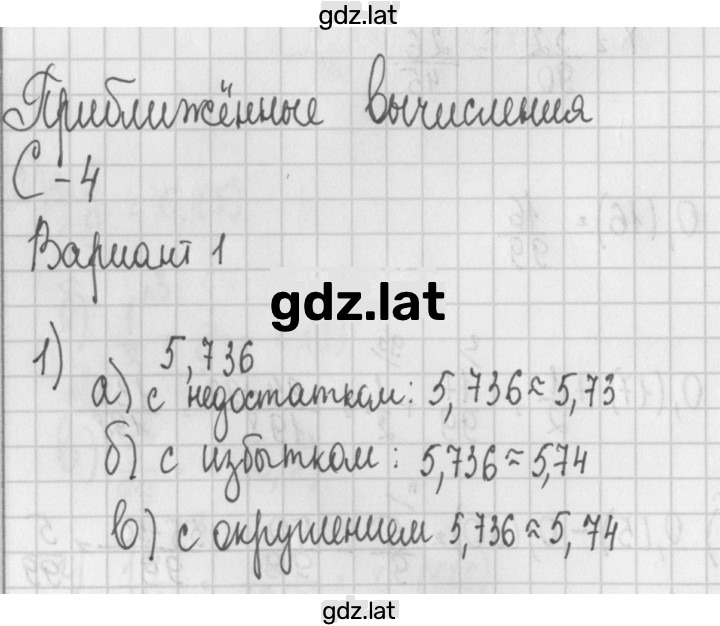 gdz.lat
Приближённые вычисления
С-4
Вариант 1
gdz.lat
1) 5,736
а) с недостатком: 5,736≈5,73
б) с избытком: 5,736≈5,74
в) с окрушением 5,736≈5,74
gdz.lat